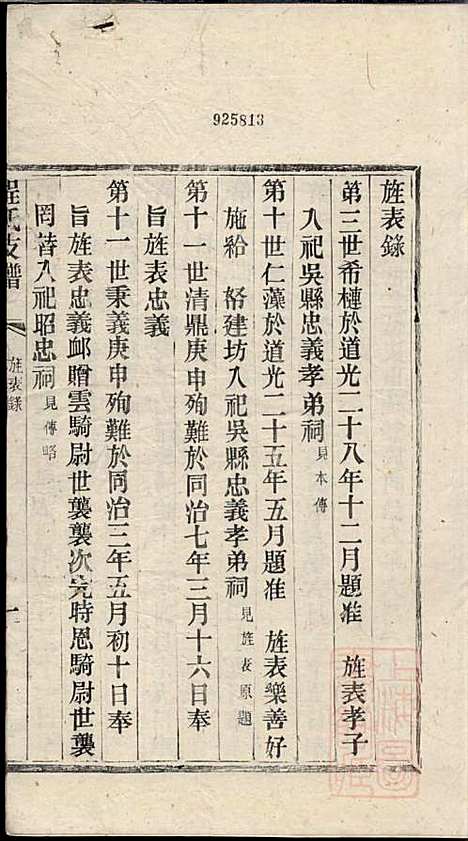 925813
旌表錄
第三世希槤於道光二十八年十二月題准　旌表孝子
入祀吳縣忠義孝弟祠見本傳
第十世仁藻於道光二十五年五月題准　旌表樂善好
施給　帑建坊入祀吳縣忠義孝弟祠見旌表原題
第十一世清鼎庚申殉難於同治七年三月十六日奉
旨旌表忠義
第十一世秉義庚申殉難於同治三年五月初十日奉
旨旌表忠義卹贈雲騎尉世襲襲次完時恩騎尉世襲
罔替入祀昭忠祠見傳略
程氏支譜
旌表錄
一